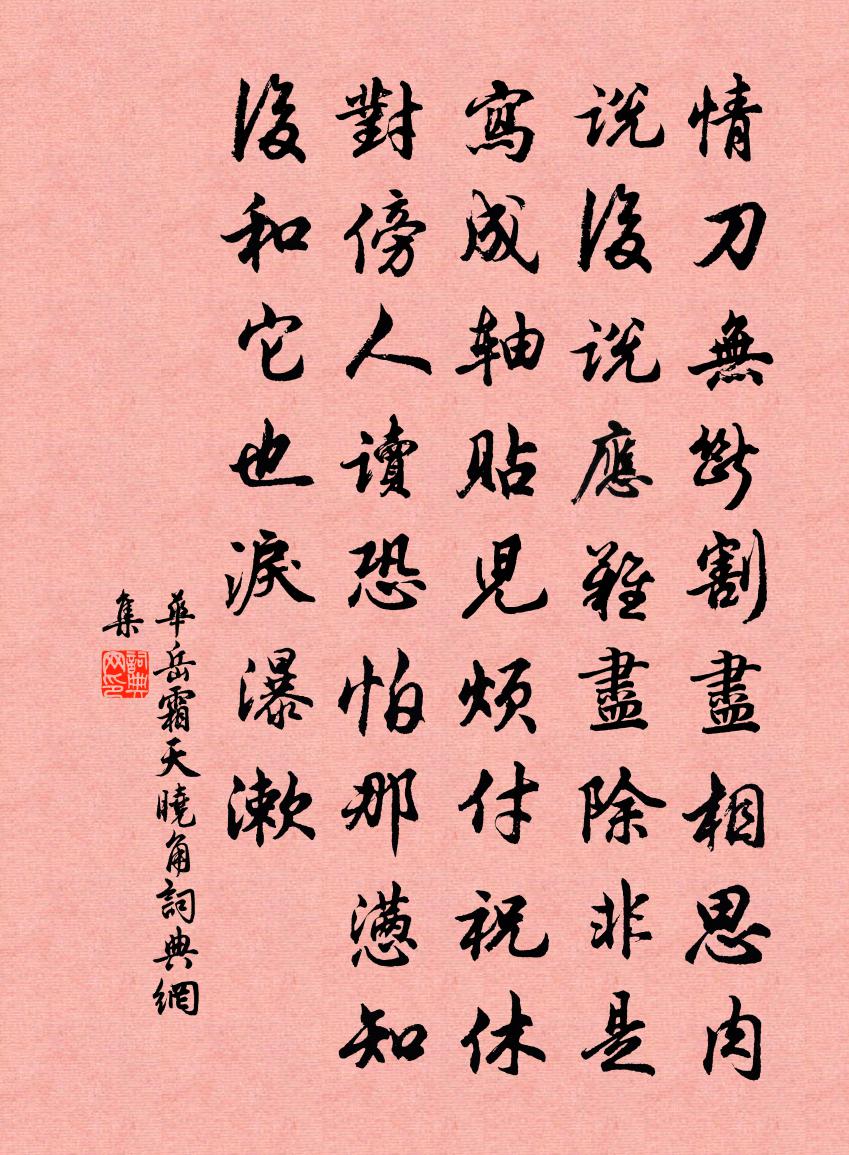 情刀無斷割盡相思肉
說後說應難盡除非是
寫成軸貼兒煩付祝休
對傍人讀恐怕那懣知
後和它也淚瀑漱
華岳霜天曉角詞典網
集
詞典
网印